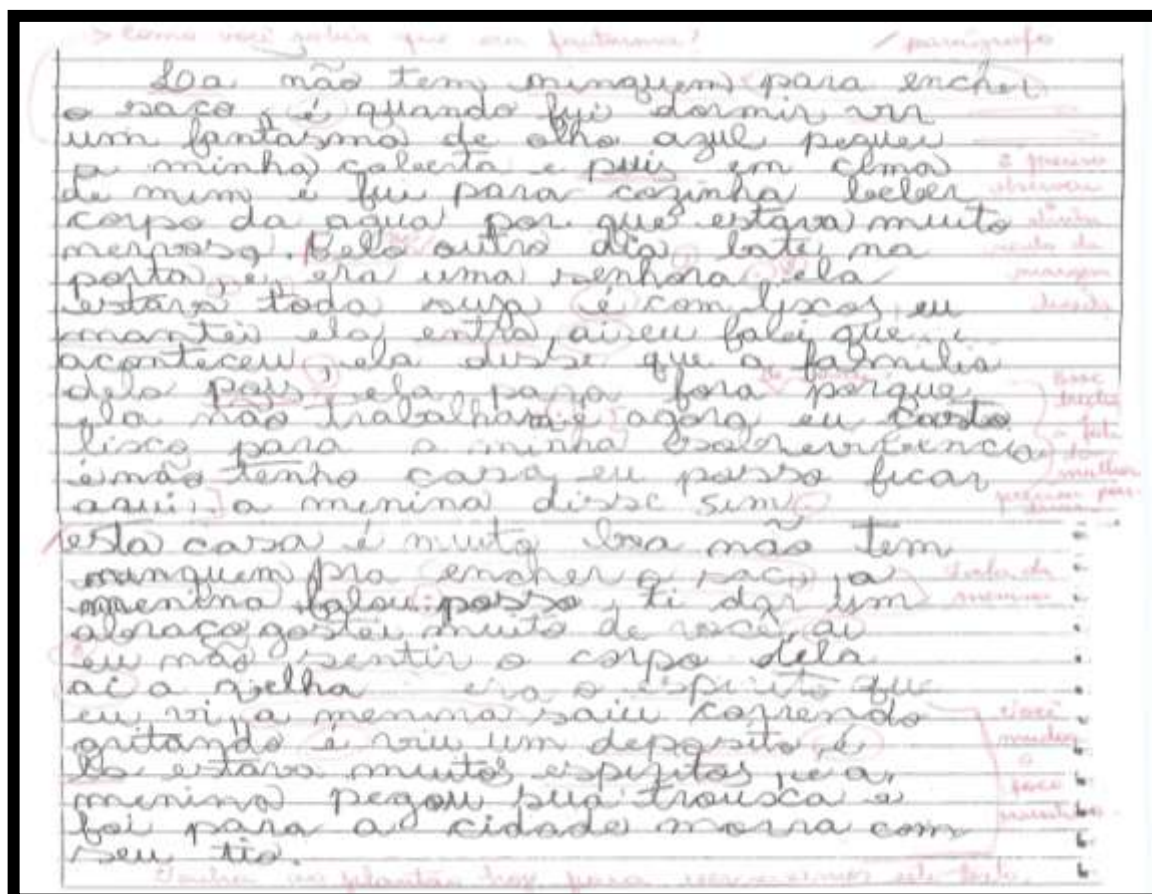 > Como você sabia que era fantasma?
/ parágrafo
La não tem ninguem para encher
o saco, é quando fui dormir vir
um fantasma de olho azul peguei
a minha coberta e puis em cima
de mim é fui para cozinha beber
corpo da agua por que estava muito
nervosa. Pelo outro dia bateu na
porta, e, era uma senhora ela
estava toda suza é com lixos, eu
mantei ela entra ai eu falei que
aconteceu, ela disse que a familia
dela pois ela para fora porque
ela não trabalhava é agora eu
lisco para a minha
é não tenho casa, eu posso ficar
aqui, a menina disse sim.
esta casa é muito boa não tem
ninguem pra encher o saco, a
menina falou posso, ti dar um
abraço, gostei muito de você, ai
eu não sentir o corpo dela
ai a velha era o espirito que
eu vi, a menina saiu correndo
gritando é viu um deposito, é
la estava muitos espiritos, e a,
menina pegou sua trousca e
foi para a cidade morra com
seu tio.
é preciso
observar
da
margem
direita
Esse
trecho
a fala
da
mulher
fala da
menina
Você
mudou
o
foco
narrativo
Venha no plantão hoje para